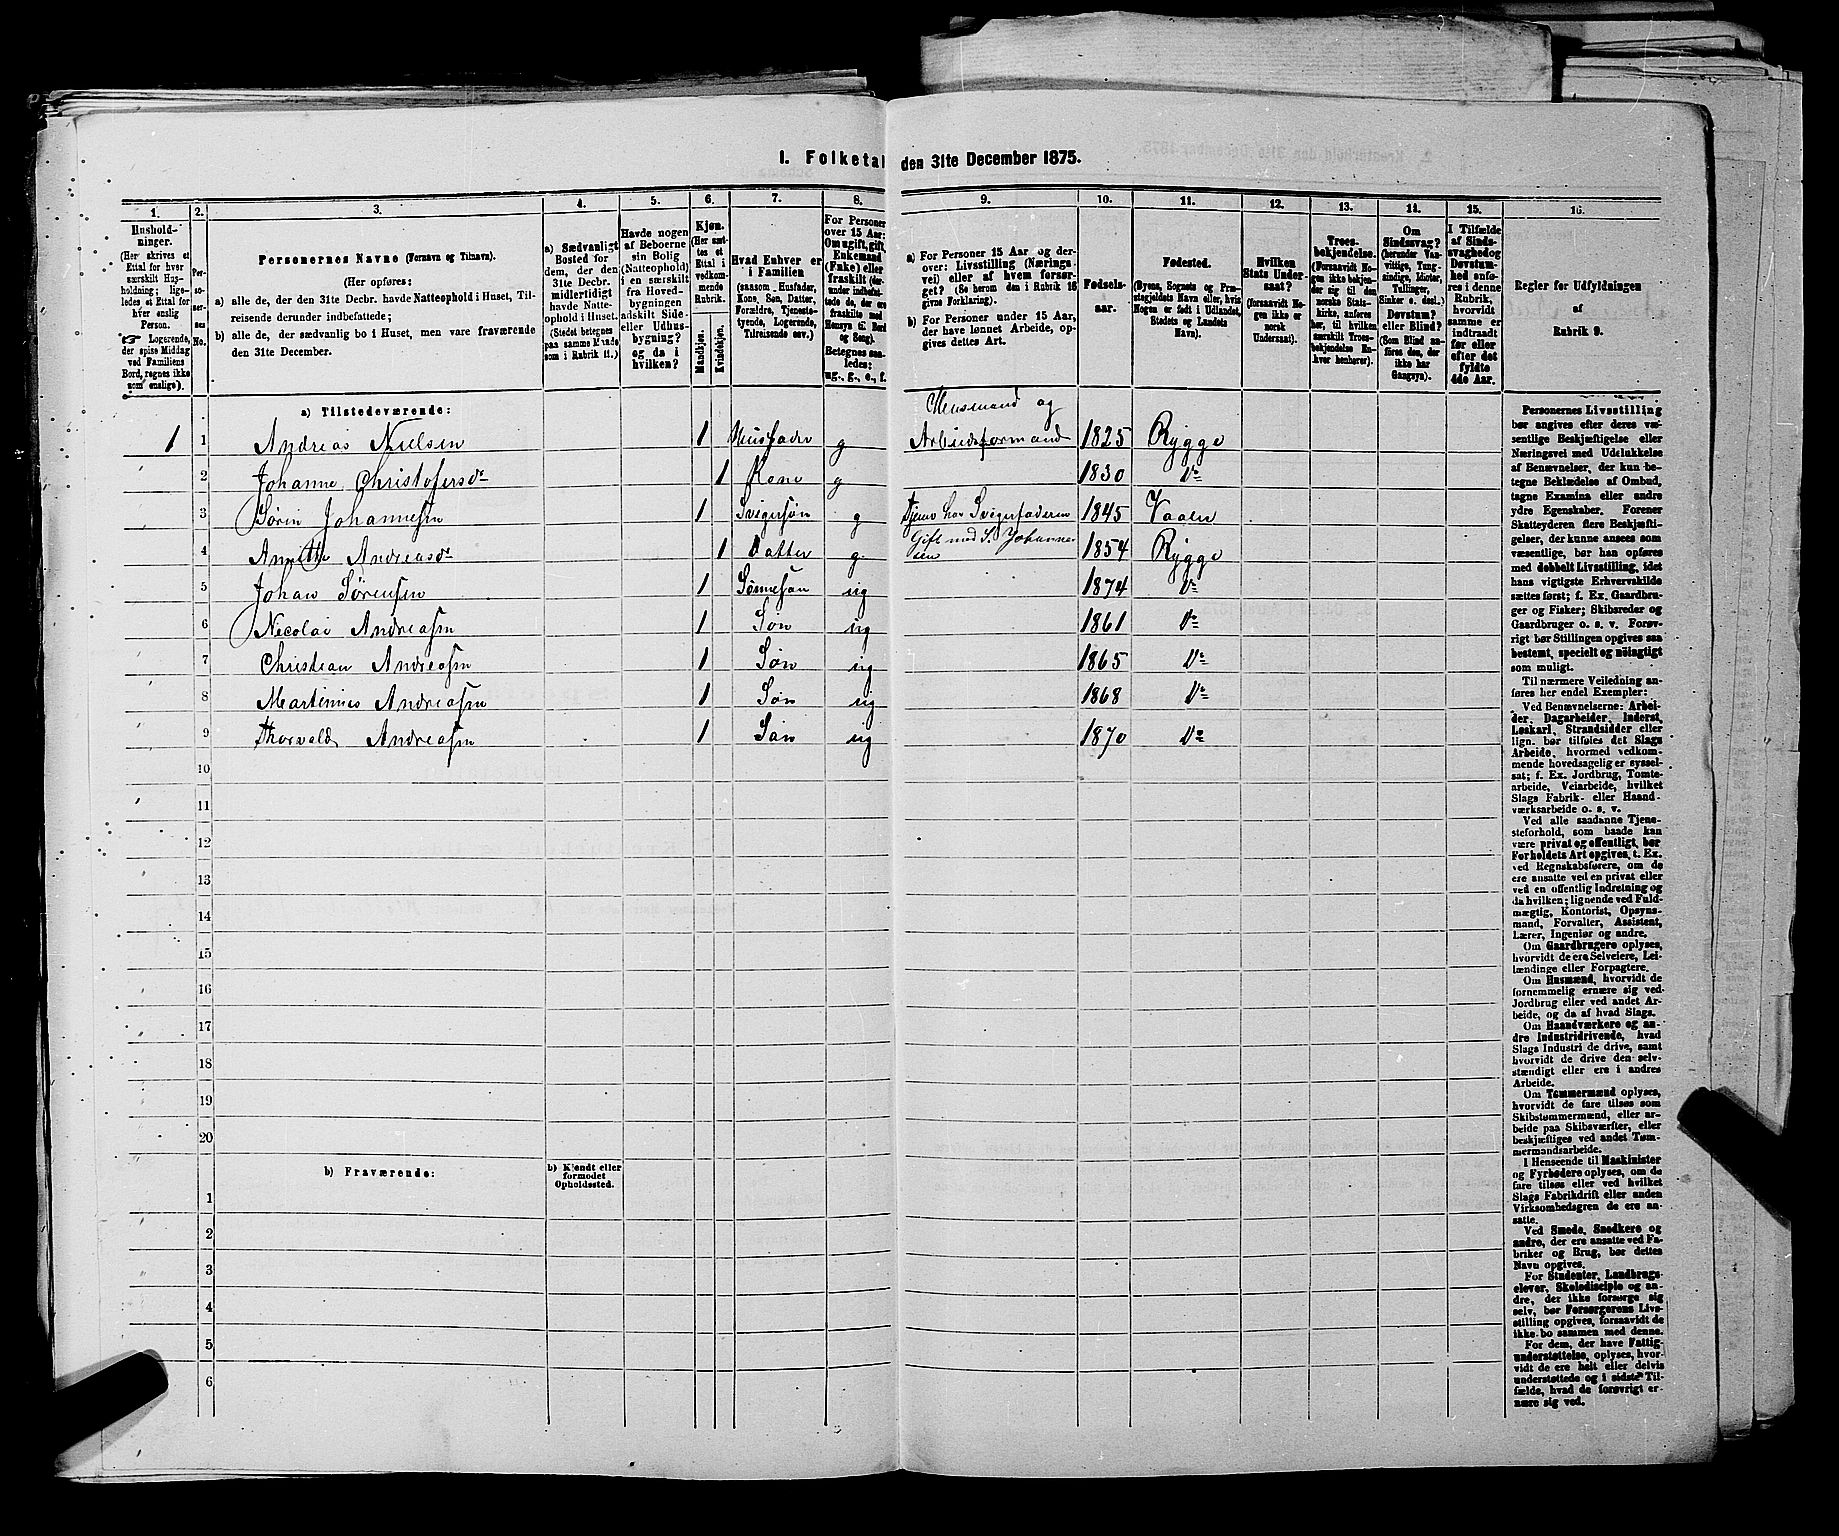 I. Folketal den 31te December 1875.
1.
Husholdninger.
(Her skrives et
Ettal for hver
særskilt Husholdning; ligeledes et Ettal for
hver enslig
Person.
☞ Logerende,
der spise Middag
ved Familiens
Bord, regnes ikke
som enslige).
2.
Personernes
No.
3.
Personernes Navne (Fornavn og Tilnavn).
(Her opføres:
a) alle de, der den 31te Decbr. havde Natteophold i Huset, Tilreisende derunder indbefattede;
b) alle de, der sædvanlig bo i Huset, men vare fraværende
den 31te December.
4.
a) Sædvanligt
Bosted for
dem, der den
31te Decbr.
midlertidigt
havde Natteophold i Huset.
(Stedet betegnes
paa samme Maade
som i Rubrik 11.)
5.
Havde nogen
af Beboerne
sin Bolig
(Natteophold)
i en særskilt
fra Hovedbygningen
adskilt Side-
eller Udhusbygning?
og da i
hvilken?
6.
Kjøn.
(Her sættes et
Ettal i
vedkommende
Rubrik.
Mandkjøn.
Kvindekjøn.
7.
Hvad Enhver er
i Familien
(saasom Husfader,
Kone, Søn, Datter,
Forældre, Tjenestetyende, Logerende,
Tilreisende osv.)
8.
For Personer
over 15 Aar:
Om ugift, gift,
Enkemand
(Enke) eller
fraskilt (derunder indbefattede de, der ere
fraskilte med
Hensyn til Bord
og Seng).
Betegnes saaledes:
ug., g., e., f.
9.
a) For Personer 15 Aar og derover: Livsstilling (Næringsvei) eller af hvem forsørget? (Se herom den i Rubrik 16
givne Forklaring).
b) For Personer under 15 Aar,
der have lønnet Arbeide, opgives dettes Art.
10.
Fødselsaar.
11.
Fødested.
(Byens, Sognets og Præstegjeldets Navn eller, hvis
Nogen er født i Udlandet,
Stedets og Landets
Navn).
12.
Hvilken
Stats Undersaat?
(forsaavidt Nogen ikke er
norsk
Undersaat).
13.
Troesbekjendelse.
(Forsaavidt Nogen ikke bekjender sig til den
norske Statskirke, anføres
her, til hvilken
særskilt Troesbekjendelse Enhver henhører).
14.
Om
Sindssvag?
(herunder Vanvittige, Tungsindige, Idioter,
Tullinger,
Sinker o. desl.)
Døvstum?
eller Blind?
(Som Blind anføres den, der
ikke har
Gangsyn).
15.
I Tilfælde
af Sindssvaghed og
Døvstumhed anføres i denne
Rubrik,
hvorvidt
samme er
indtraadt
før eller
efter det
fyldte
4de Aar.
16.
Regler for Udfyldningen
af
Rubrik 9.
a) Tilstedeværende:
1 1 Andreas Nielsen 1 Husfader g Husmand og Arbeidsformand 1825 Rygge
2 Johanne Christofersdr 1 Kone g 1830 Do
3 Sørin Johannesen 1 Svigersøn g Tjener hos Svigerfaderen 1845 Vaaler
4 Annette Andreasdr 1 Datter g. Gift med S. Johannesen 1854 Rygge
5 Johan Sørensen 1 Sønnesøn ug 1874 Do
6 Necolai Andreasen 1 Søn ug 1861 Do
7 Christian Andreasen 1 Søn ug 1865 Do
8 Martinius Andreasen 1 Søn ug 1868 Do
9 Thorvald Andreasen 1 Søn ug 1870 Do
10
11
12
13
14
15
16
17
18
19
20
b) Fraværende:
b) Kjendt eller
formodet
Opholdssted.
1
2
3
4
5
6
Personernes Livsstilling
bør angives efter deres væsentlige Beskjæftigelse eller
Næringsvei med Udelukkelse
af Benævnelser, der kun betegne Beklædelse af Ombud,
tagne Examina eller andre
ydre Egenskaber. Forener
Skatteyderen flere Beskjæftigelser, der kunne ansees som
væsentlige, bør han opføres
med dobbelt Livsstilling, idet
hans vigtigste Erhvervskilde
sættes først; f. Ex. Gaardbruger og Fisker; Skibsreder og
Gaardbruger o. s. v. Forøvrigt bør Stillingen opgives saa
bestemt, specielt og nöiagtigt
som muligt.
Til nærmere Veiledning anføres her endel Exempler:
Ved Benævnelserne: Arbeider, Dagarbeider, Inderst,
Løskarl, Strandsidder eller
lign. bør tilføies det Slags
Arbeide, hvormed vedkommende hovedsagelig er sysselsat; f. Ex. Jordbrug, Tomtearbeide, Veiarbeide, hvilket
Slags Fabrik- eller Haandværksarbeide o. s. v.
Ved alle saadanne Tjenesteforhold, som baade kan
være privat og offentligt, bør
Forholdets Art opgives, t. Ex.
ved Regnskabsførere, om de
ere ansatte ved en privat eller
ved en offentlig Indretning og
da hvilken; lignende ved Fuldmægtig, Kontorist, Opsynsmand, Forvalter, Assistent,
Lærer, Ingeniør og andre.
Om Gaardbrugere oplyses,
hvorvidt de ere Selveiere, Leilændinge eller Forpagtere.
Om Husmænd, hvorvidt de
fornemmelig ernære sig ved
Jordbrug eller ved andet Arbeide, og da af hvad Slags.
Om Haandværkere og andre Industridrivende, hvad
Slags Industri de drive, samt
hvorvidt de drive den selvstændigt eller ere i andres
Arbeide.
Om Tømmermænd oplyses,
hvorvidt de fare tilsøs som
Skibstømmermænd, eller arbeide paa Skibsværfter, eller
beskjæftiges ved andet Tømmermandsarbeide.
I Henseende til Maskinister
og Fyrbødere oplyses, om de
fare tilsøs eller ved hvilket
Slags Fabrikdrift eller anden
Virksomhedsgren de ere ansatte.
Ved Smede, Snedkere og
andre, der ere ansatte ved Fabriker og Brug, bør dettes
Navn opgives.
For Studenter, Landbrugselever, Skoledisciple og andre, der ikke forsørge sig
selv, bør Forsørgerens Livsstilling opgives, forsaavidt de
ikke bo sammen med denne.
For dem, der have Fattigunderstøttelse, oplyses, hvorvidt de ere helt eller delvis
understøttede og i sidste Tilfælde, hvad de forøvrigt ernære sig ved.